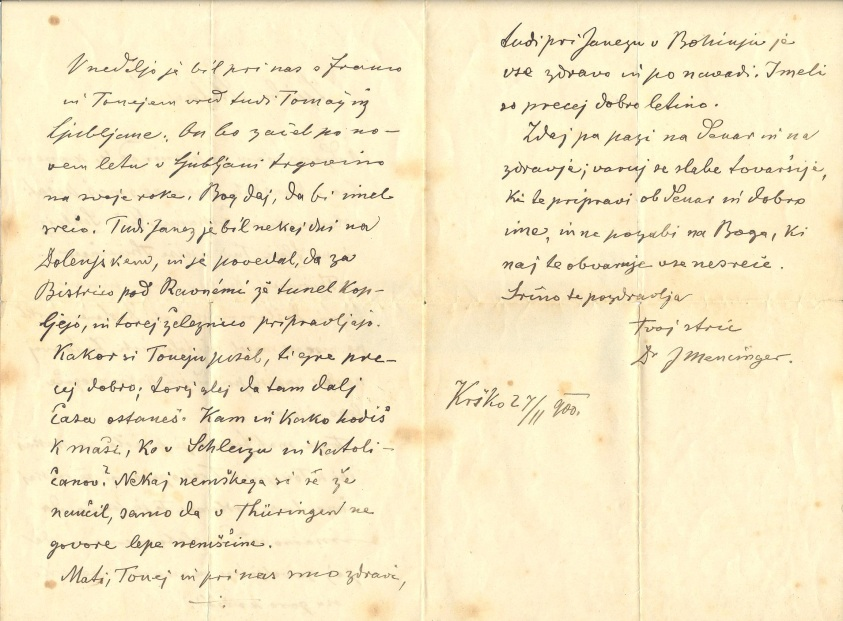 V nedeljo je bil pri nas s Franco
in Tonejem vred tudi Tomaž iz
Ljubljane. On bo začel po no-
vem letu v Ljubljani trgovino
na svoje roke. Bog daj, da bi imel
srečo. Tudi Janez je bil nekaj dni na
Dolenjskem, in je povedal, da za
Bistrico pod Ravnemi že tunel kop-
ljejo, in torej železnico pripravljajo.
Kakor si Toneju pisal, ti gre pre-
cej dobro; torej glej da tam dalj
časa ostaneš. Kam in kako hodiš
k maši, ko v Schleizu ni katoli-
čanov? Nekaj nemškega si se že
naučil, samo da v Thüringen ne
govore lepe nemščine.
Mati, Tonej in pri nas smo zdravi,
tudi pri Janezu v Bohinju je
vse zdravo in po navadi. Imeli
so precej dobro letino.
Zdaj pa pazi na denar in na
zdravje; varuj se slabe tovaršije,
ki te pripravi ob denar in dobro
ime, in ne pozabi na Boga, ki
naj te obvaruje vse nesreče.
Srčno te pozdravlja
tvoj stric
Dr JMencinger.
Krško 27/11 900.